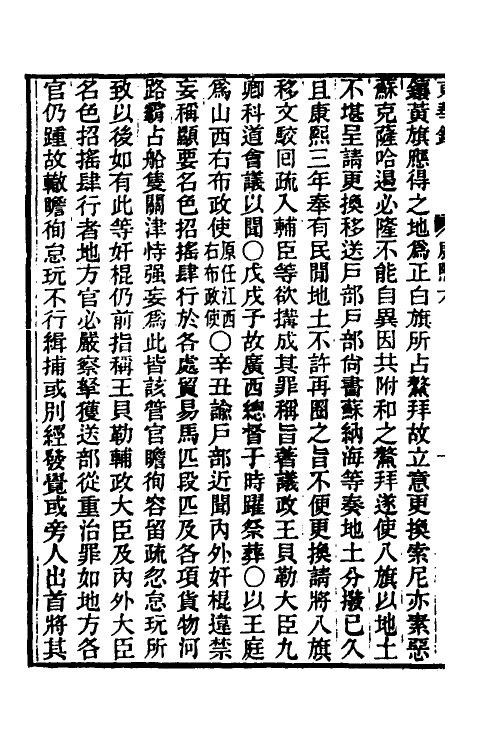 鑲黃旗應得之地爲正白旗所占鰲拜故立意更換索尼亦素惡
蘇克薩哈遏必隆不能自異因共附和之鰲拜遂使八旗以地土
不堪呈請更換移送戶部戶部尚書蘇納海等奏地土分撥已久
且康熙三年奉有民閒地土不許再圈之旨不便更換請將八旗
移文駮回疏入輔臣等欲搆成其罪稱旨著議政王貝勒大臣九
卿科道會議以聞○戊戌子故廣西總督于時躍祭葬○以王庭
爲山西右布政使原任江西右布政使○辛丑諭戶部近聞內外奸棍違禁
妄稱顯要名色招搖肆行於各處貿易馬匹段匹及各項貨物河
路霸占船隻關津恃强妄爲此皆該管官瞻徇容留疏忽怠玩所
致以後如有此等奸棍仍前指稱王貝勒輔政大臣及內外大臣
名色招搖肆行者地方官必嚴察拏獲送部從重治罪如地方各
官仍踵故轍瞻徇怠玩不行緝捕或別經發覺或旁人出首將其